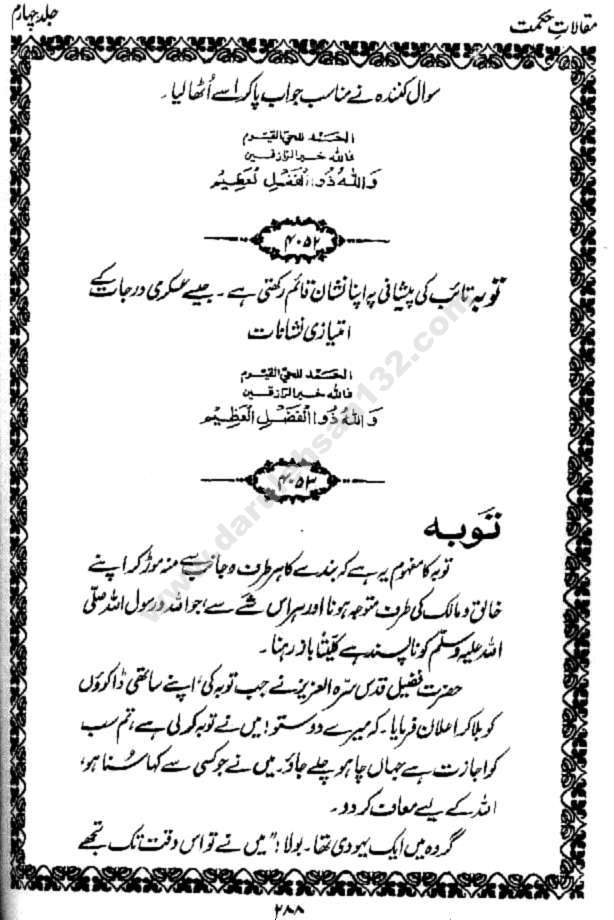 مقالاتِ حکمت
جلد چہارم
سوال کنندہ نے مناسب جواب پا کر اسے اُٹھا لیا۔
الحمد للحیّ القیّوم
فاللہ خیر الرّازقین
وَاللّٰہُ ذُو الْفَضْلِ الْعَظِیْمِ
۴۰۵۲
توبہ تائب کی پیشانی پہ اپنا نشان قائم رکھتی ہے۔ جیسے عسکری درجات کے
امتیازی نشانات
الحمد للحیّ القیّوم
فاللہ خیر الرّازقین
وَاللّٰہُ ذُو الْفَضْلِ الْعَظِیْمِ
۴۰۵۳
توبہ
توبہ کا مفہوم یہ ہے کہ بندے کا ہر طرف و جانب سے منہ موڑ کر اپنے
خالق و مالک کی طرف متوجہ ہونا اور ہر اس شئے سے، جو اللہ و رسول اللہ صلّی
اللہ علیہ وسلّم کو ناپسند ہے کلیتاً باز رہنا۔
حضرت فضیل قدس سرہ العزیز نے جب توبہ کی، اپنے ساتھی ڈاکوؤں
کو بلا کر اعلان فرمایا۔ کہ میرے دوستو! میں نے توبہ کر لی ہے، تم سب
کو اجازت ہے جہاں چاہو چلے جاؤ۔ میں نے جو کسی سے کہا سُنا ہو،
اللہ کے لیے معاف کر دو۔
گروہ میں ایک یہودی تھا۔ بولا: "میں نے تو اس وقت تک تجھے
۲۸۸
www.darulehsan132.com